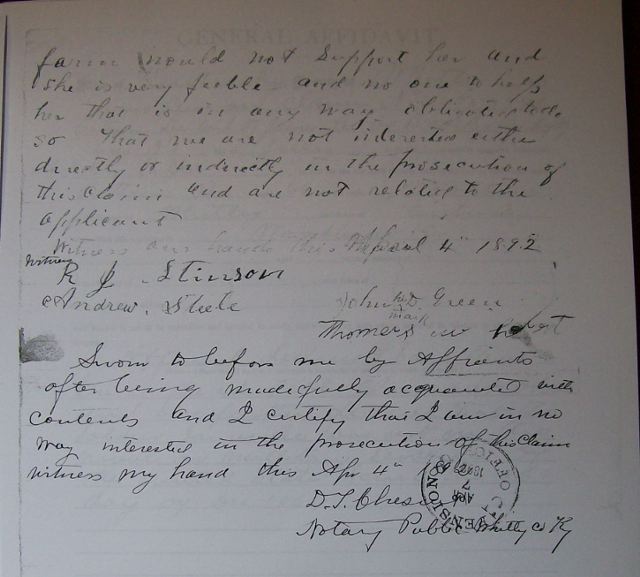 GENERAL AFFIDAVIT
farm would not Support her and
she is very feeble and no one to help
her that is in any way obligated to do
so that we are not interested either
directly or indirectly in the prosecution of
this claim and are not related to the
applicant
Witness our hands this April 4" 1892
Witness
R J Stinson
Andrew. Steele
John his D Green
mark
Thomas
Sworn to before me by Affiants
after being made fully acquainted with
contents and I certify that I am in no
way interested in the prosecution of this claim
witness my hand this Apr 4" 18
D. T. Ches
Notary Public Whitley Co Ky
PENSION OFFICE
APR 7 1892